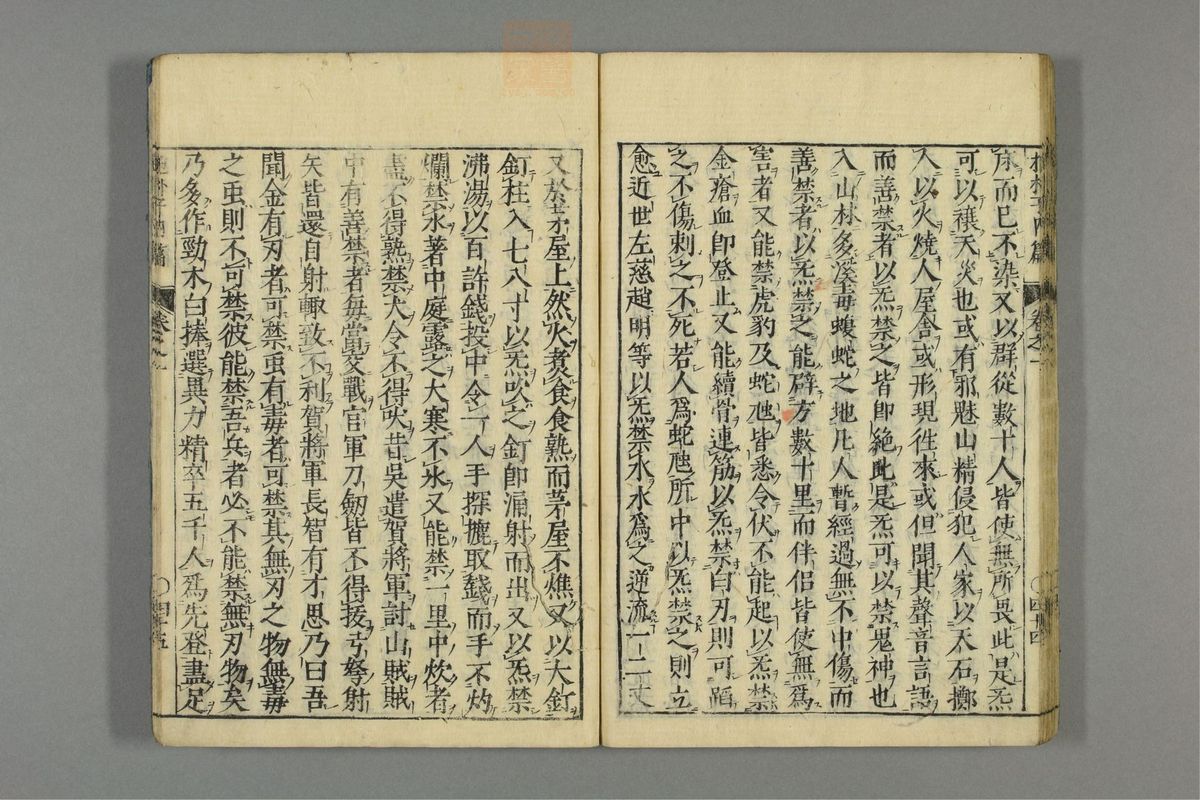 床而已不染又以群從數十人皆使無所畏此是炁
可以禳天災也或有邪魅山精侵犯人家以瓦石擲
人以火燒人屋舍或形現徃來或但聞其聲音言語
而善禁者以炁禁之皆即絕此是炁可以禁鬼神也
入山林多溪毒蝮蛇之地凢人暫經過無不中傷而
善禁者以炁禁之能辟方數十里而伴侶皆使無爲
害者又能禁虎豹及蛇虺皆悉令伏不能起以炁禁
金瘡血即登止又能續骨連筋以炁禁白刃則可蹈
之不傷刺之不死若人爲蛇虺所中以炁禁之則立
愈近世左慈趙明等以炁禁水水爲之逆流一二丈
又於茅屋上然火煮食食熟而茅屋不燋又以大釘
釘柱入七八寸以炁吹之釘即涌射而出又以炁禁
沸湯以百許錢投中令一人手探摝取錢而手不灼
爛禁水著中庭露之大寒不氷又能禁一里中炊者
盡不得熟禁犬令不得吠昔吳遣賀將軍討山賊賊
中有善禁者每當交戰官軍刀劒皆不得拔弓弩射
矢皆還自射輙致不利賀將軍長智有才思乃曰吾
聞金有刃者可禁虫有毒者可禁其無刃之物無毒
之虫則不可禁彼能禁吾兵者必不能禁無刃物矣
乃多作勁木白捧選異力精卒五千人爲先登盡足
卷之一
四十四